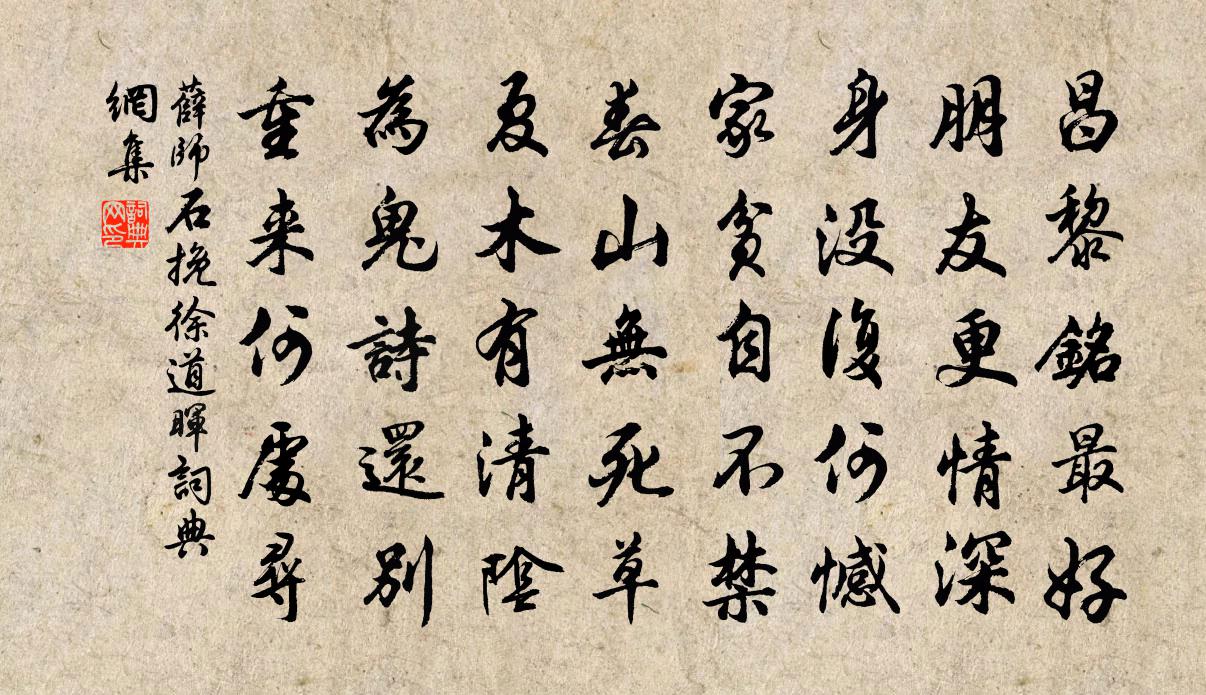 昌黎銘最好
朋友更情深
身没復何憾
家貧自不禁
春山無死草
夏木有清陰
為鬼詩還别
重来何處尋
薛師石挽徐道暉詞典
網集
詞典
网印